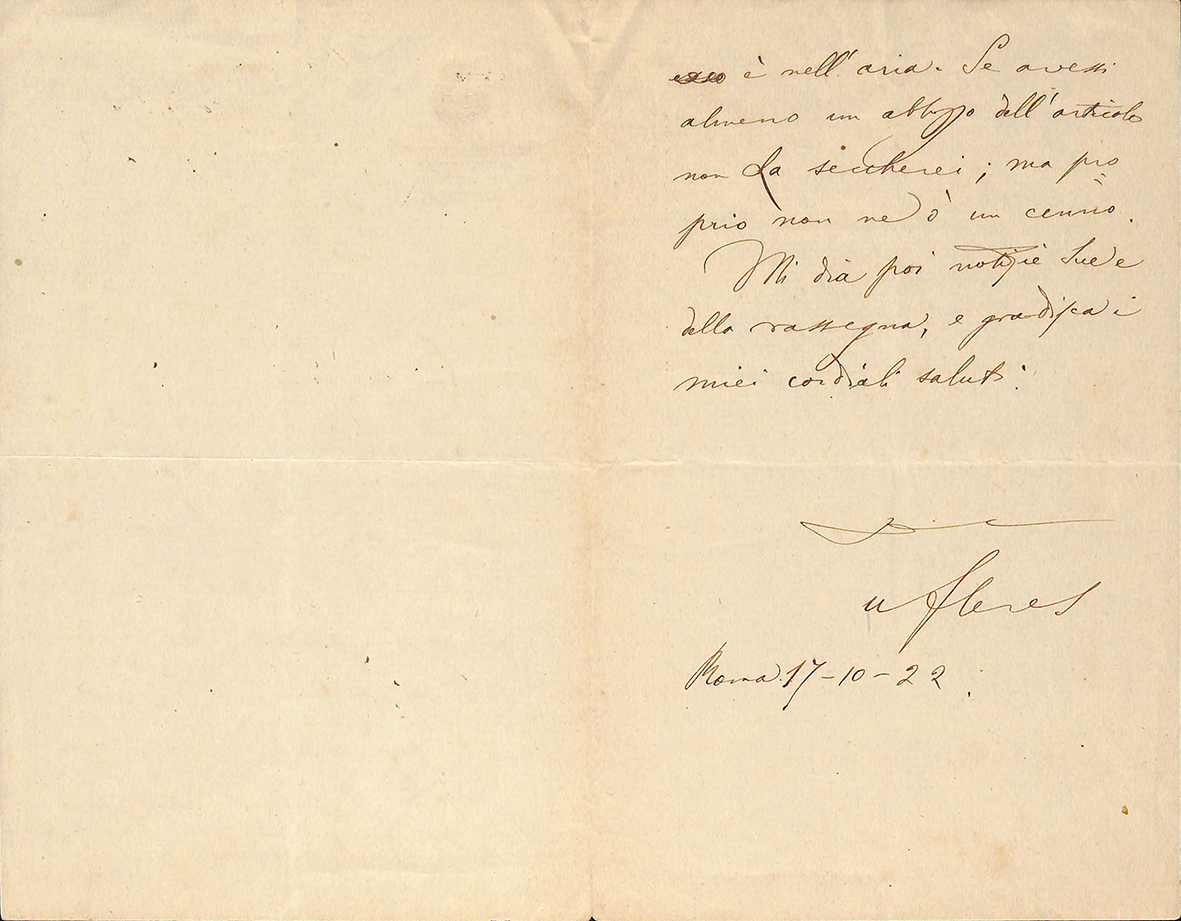 esso è nell'aria. Se avessi
almeno un abbozzo dell'articolo
non La seccherei; ma pro
prio non ne ò un cenno.
Mi dia poi notizie Sue e
della rassegna, e gradisca i
miei cordiali saluti.
U Fleres
Roma 17-10-22.